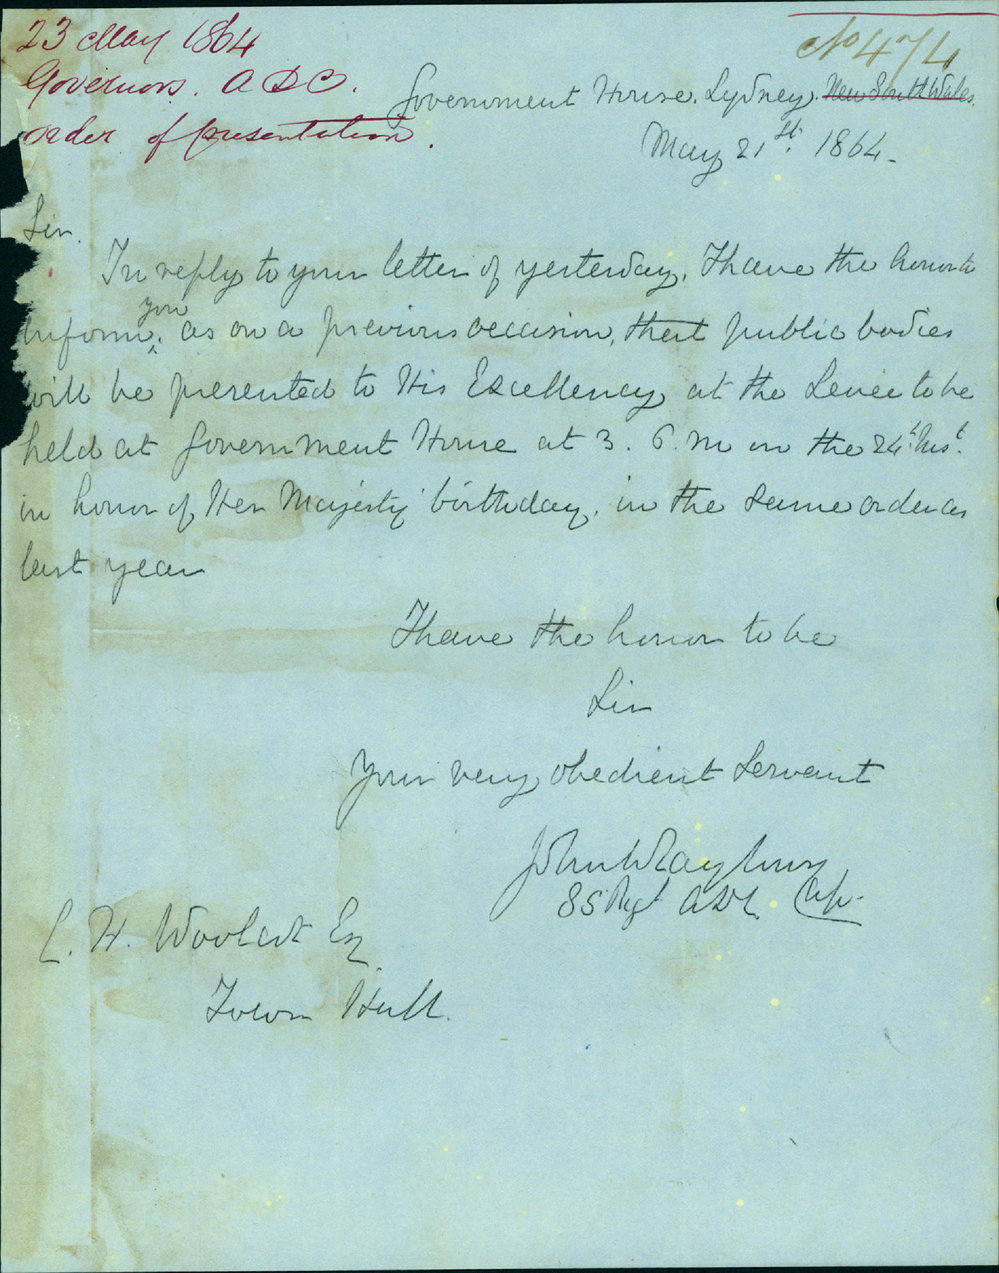 23 May 1864
Governors. A D C.
order of presentation.
No 474
Government House. Sydney. New South Wales.
May 21st. 1864.
Sir.
In reply to your letter of yesterday, I have the honor to
inform you, as on a previous occasion, that public bodies
will be presented to His Excellency at the Levée to be
held at Government House at 3. P.M on the 24th Inst.
in honor of Her Majesty' birthday, in the same order as
last year
I have the honor to be
Sir
Your very obedient Servant
John
Regt ADC. Capt.
C. H. Woolcott Esq
Town Hall.